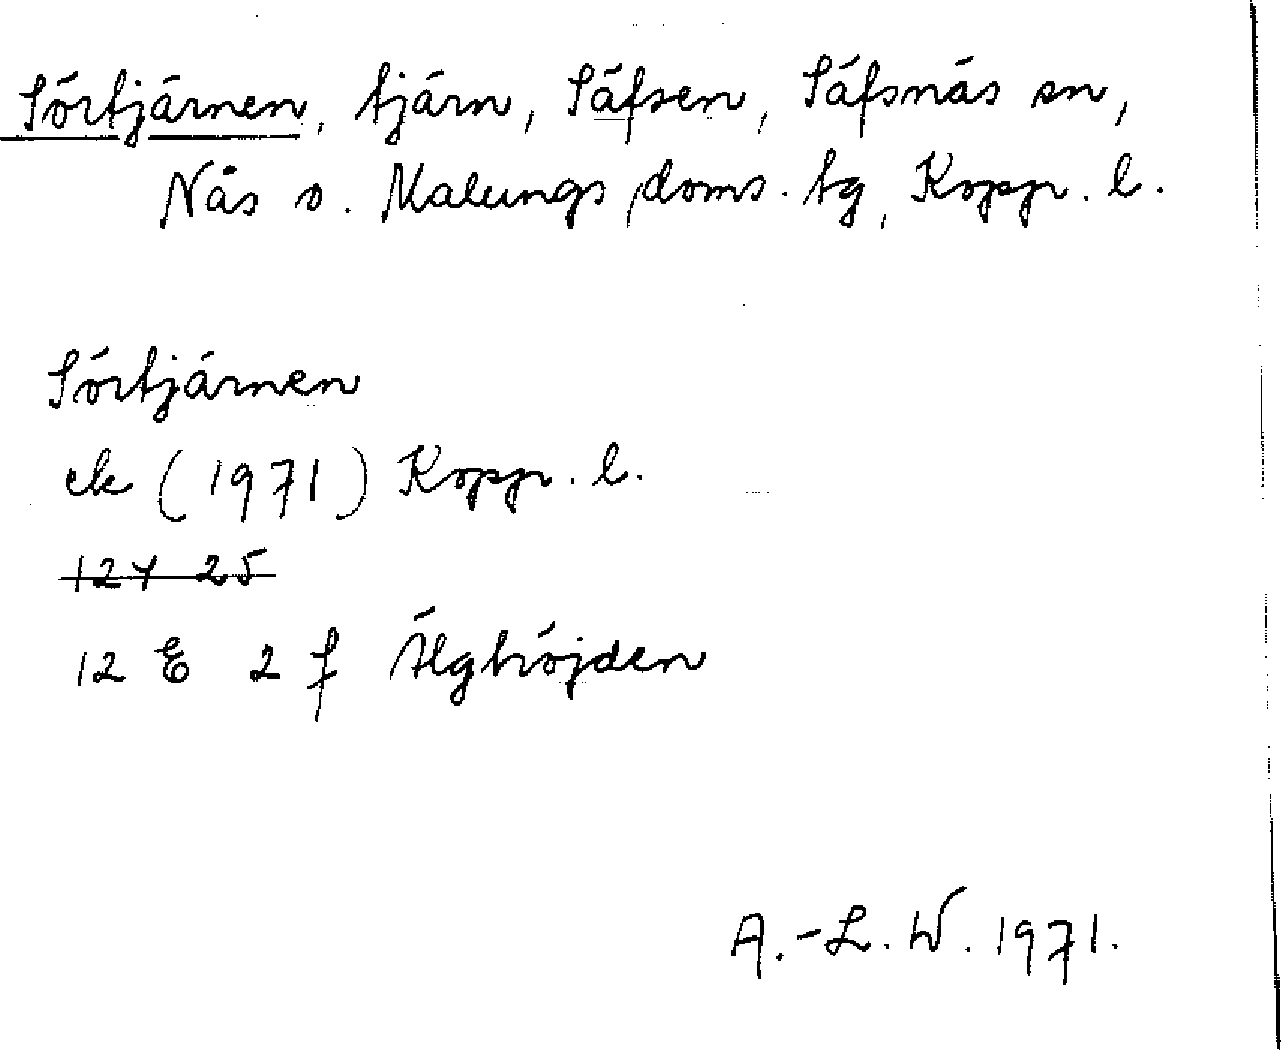 Sörtjärnen, tjärn, Säfsen, Säfsnäs sn,
Näs o. Malungs doms. tg, Kopp. l.
Sörtjärnen
ek (1971) Kopp. l.
12Y 25
12 E 2 f Älghöjden
A.-L. W. 1971.